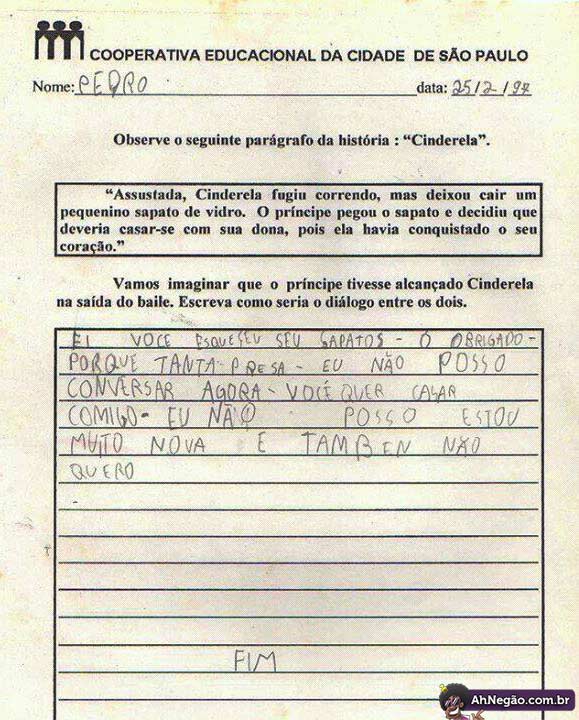 COOPERATIVA EDUCACIONAL DA CIDADE DE SÃO PAULO
Nome: PEDRO data: 25/2/97
Observe o seguinte parágrafo da história : "Cinderela".
"Assustada, Cinderela fugiu correndo, mas deixou cair um
pequenino sapato de vidro. O príncipe pegou o sapato e decidiu que
deveria casar-se com sua dona, pois ela havia conquistado o seu
coração."
Vamos imaginar que o príncipe tivesse alcançado Cinderela
na saída do baile. Escreva como seria o diálogo entre os dois.
EI VOCE ESQUESEU SEU SAPATOS - O OBRIGADO -
PORQUE TANTA PRESA - EU NÃO POSSO
CONVERSAR AGORA - VOCÊ QUER CASAR
COMIGO - EU NÃO POSSO ESTOU
MUITO NOVA E TAMBEN NÃO
QUERO
-
FIM
AhNegão.com.br